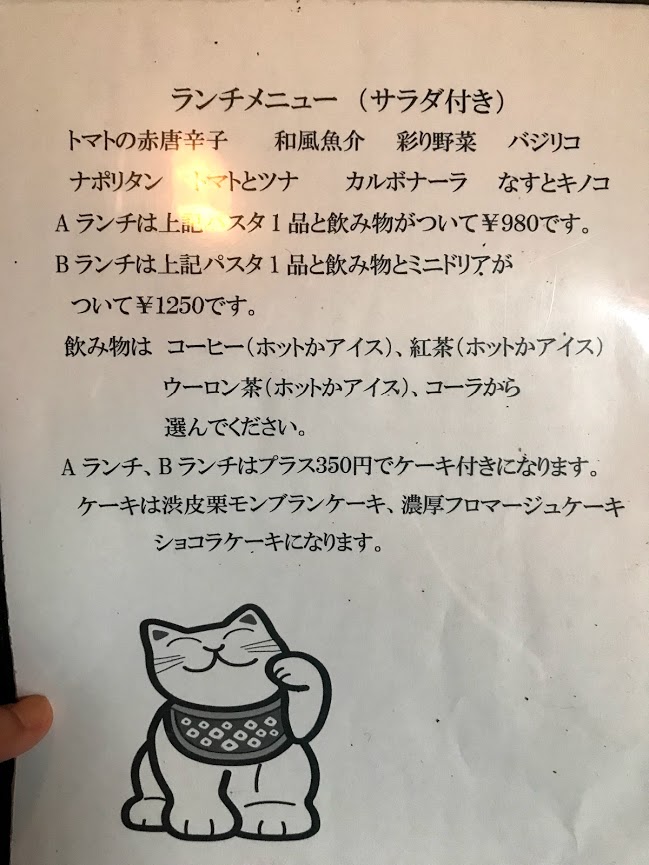 ランチメニュー （サラダ付き）
トマトの赤唐辛子 和風魚介 彩り野菜 バジリコ
ナポリタン トマトとツナ カルボナーラ なすとキノコ
Aランチは上記パスタ1品と飲み物がついて￥980です。
Bランチは上記パスタ1品と飲み物とミニドリアが
ついて￥1250です。
飲み物は コーヒー（ホットかアイス）、紅茶（ホットかアイス）
ウーロン茶（ホットかアイス）、コーラから
選んでください。
Aランチ、Bランチはプラス350円でケーキ付きになります。
ケーキは渋皮栗モンブランケーキ、濃厚フロマージュケーキ
ショコラケーキになります。